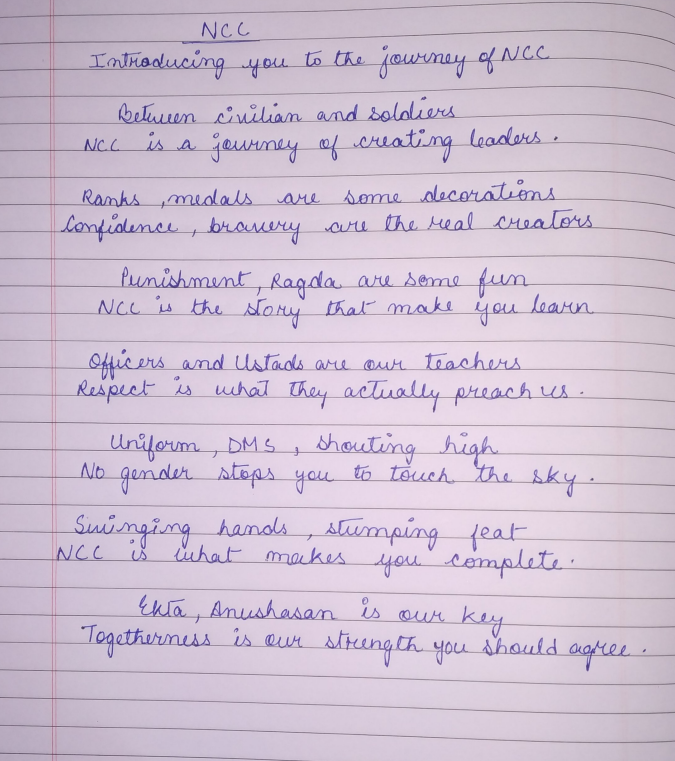 NCC
Introducing you to the journey of NCC
Between civilian and soldiers
NCC is a journey of creating leaders.
Ranks, medals are some decorations
Confidence, bravery are the real creators
Punishment, Ragda are some fun
NCC is the story that make you learn
Officers and Ustads are our teachers
Respect is what they actually preach us.
Uniform, DMS, shouting high
No gender stops you to touch the sky.
Swinging hands, stumping feat
NCC is what makes you complete.
Ekta, Anushasan is our key
Togetherness is our strength you should agree.